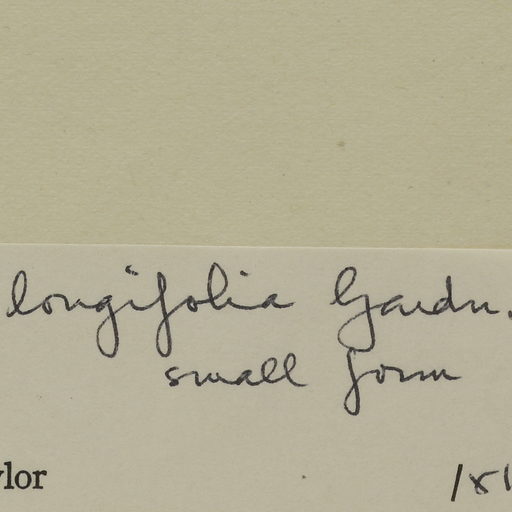 longifolia Gardn.
small form
ylor